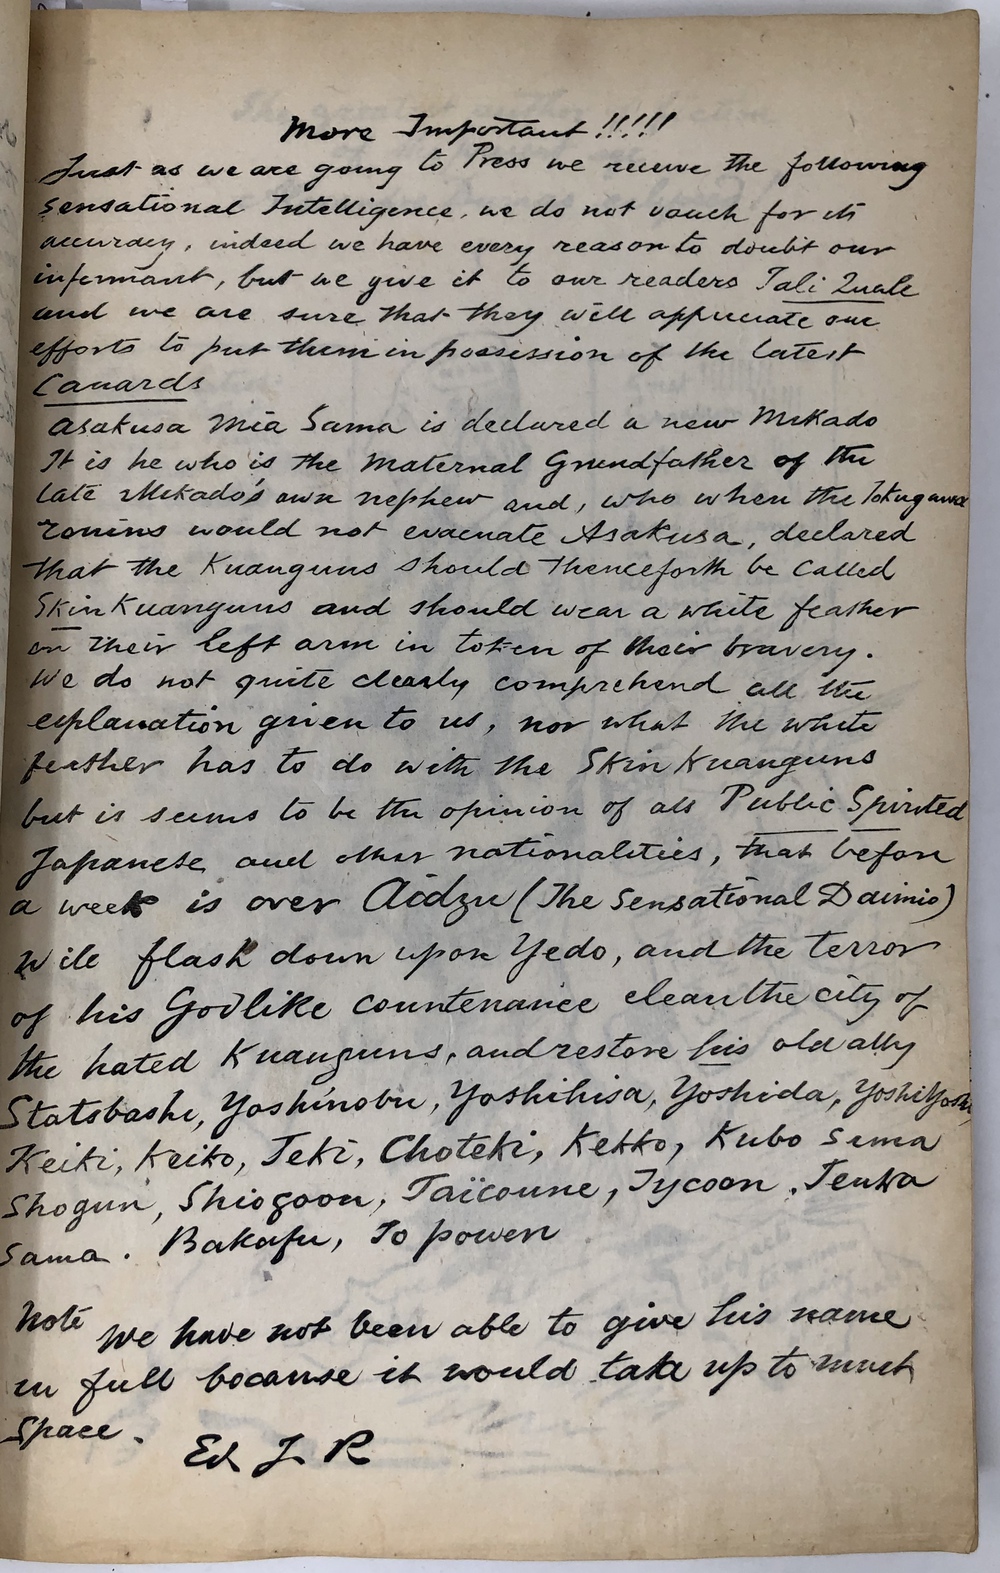 More Important !!!!!
Just as we are going to Press we receive the following
Sensational Intelligence, we do not vouch for its
accuracy, indeed we have every reason to doubt our
informant, but we give it to our readers Tali Quale
and we are sure that they will appreciate our
efforts to put them in possession of the latest
Canards
Asakusa Mia Sama is declared a new Mikado
It is he who is the Maternal Grandfather of the
late Mikado's own nephew and, who when the Tokugawa
ronins would not evacuate Asakusa, declared
that the Kuanguns should thenceforth be called
Skin Kuanguns and should wear a white feather
on their left arm in token of their bravery.
We do not quite clearly comprehend all the
explanation given to us, nor what the white
feather has to do with the Skin Kuanguns
but is seems to be the opinion of all Public Spirited
Japanese and other nationalities, that before
a week is over Aidzu (The Sensational Daimio)
Will flash down upon Yedo, and the terror
of his Godlike countenance clean the city of
the hated Kuanguns, and restore his old ally
Statsbashi, Yoshinobu, Yoshihisa, Yoshida, Yoshi Yoshi,
Keiki, Keiko, Teki, Choteki, Kekko, Kubo Sama
Shogun, Shiogoon, Taïcoune, Tycoon, Tenka
Sama. Bakafu, To power
Note We have not been able to give his name
in full bocause it would take up to much
Space.
Ed J R